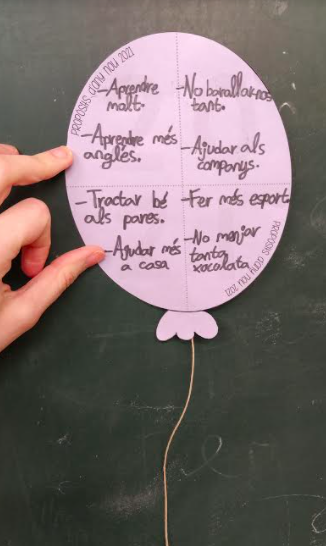 PROPÒSITS D'ANY NOU 2021
-Aprendre
molt.
-Aprendre més
anglès.
-Tractar bé
als pares.
-Ajudar més
a casa
-No barallar-nos
tant.
-Ajudar als
companys.
-Fer més esport.
-No menjar
tanta
xocolata
PROPÒSITS D'ANY NOU 2021